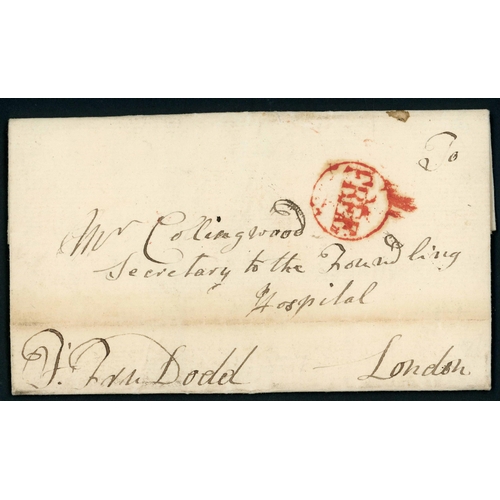 To
FREE
Mr Collingwood
Secretary to the Foundling
Hospital
London
Dodd